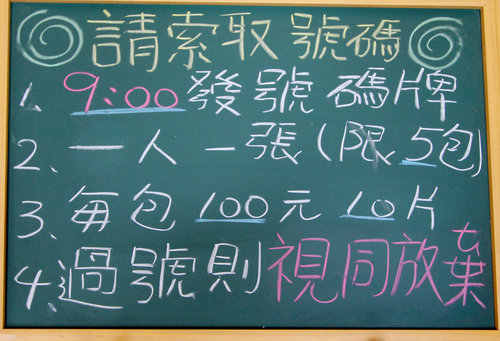 請索取號碼
1. 9:00發號碼牌
2、一人一張(限5包)
3、每包100元10片
4、過號則視同放棄